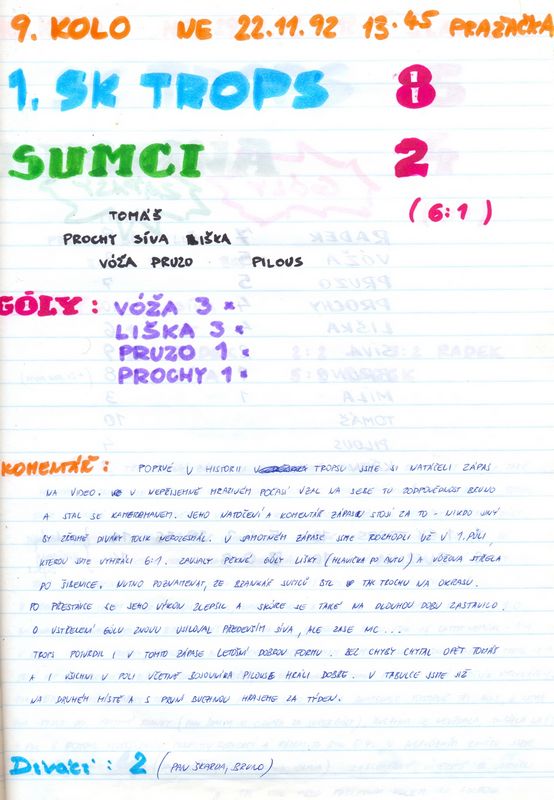 9. KOLO NE 22.11.92 13.45 PRAŽAČKA
1. SK TROPS 8
SUMCI 2
(6:1)
TOMÁŠ
PROCHY SÍVA LIŠKA
VÓŽA PRUZO PILOUS
GÓLY: VÓŽA 3 x
LIŠKA 3 x
PRUZO 1 x
PROCHY 1 x
KOMENTÁŘ: POPRVÉ V HISTORII TROPSU JSME SI NATÁČELI ZÁPAS
NA VIDEO. V NEPŘÍJEMNĚ MRAZIVÉM POČASÍ VZAL NA SEBE TU ZODPOVĚDNOST BRUNO
A STAL SE KAMERAMANEM. JEHO NATOČENÍ A KOMENTÁŘ ZÁPASU STOJÍ ZA TO - NIKDO JINÝ
BY ZŘEJMĚ DIVÁKY TOLIK NEROZESMÁL. V SAMOTNÉM ZÁPASE JSME ROZHODLI UŽ V 1. PŮLI,
KTEROU JSME VYHRÁLI 6:1. ZAUJALY PĚKNÉ GÓLY LIŠKY (HLAVIČKA PO AUTU) A VÓŽOVA STŘELA
DO ŠIBENICE. NUTNO POZNAMENAT, ŽE BRANKÁŘ SUMCŮ BYL TAK TROCHU NA OKRASU.
PO PŘESTÁVCE SE JEHO VÝKON ZLEPŠIL A SKÓRE SE TAKÉ NA DLOUHOU DOBU ZASTAVILO.
O VSTŘELENÍ GÓLU ZNOVU USILOVAL PŘEDEVŠÍM SÍVA, ALE ZASE NIC...
TROPS POTVRDIL I V TOMTO ZÁPASE LETOŠNÍ DOBROU FORMU. BEZ CHYBY CHYTAL OPĚT TOMÁŠ
A I VŠICHNI V POLI VČETNĚ BOJOVNÍKA PILOUSE HRÁLI DOBŘE. V TABULCE JSME JIŽ
NA DRUHÉM MÍSTĚ A S PRVNÍ BUCHNOU HRAJEME ZA TÝDEN.
Diváci: 2 (PAN ŠKARDA, BRUNO)